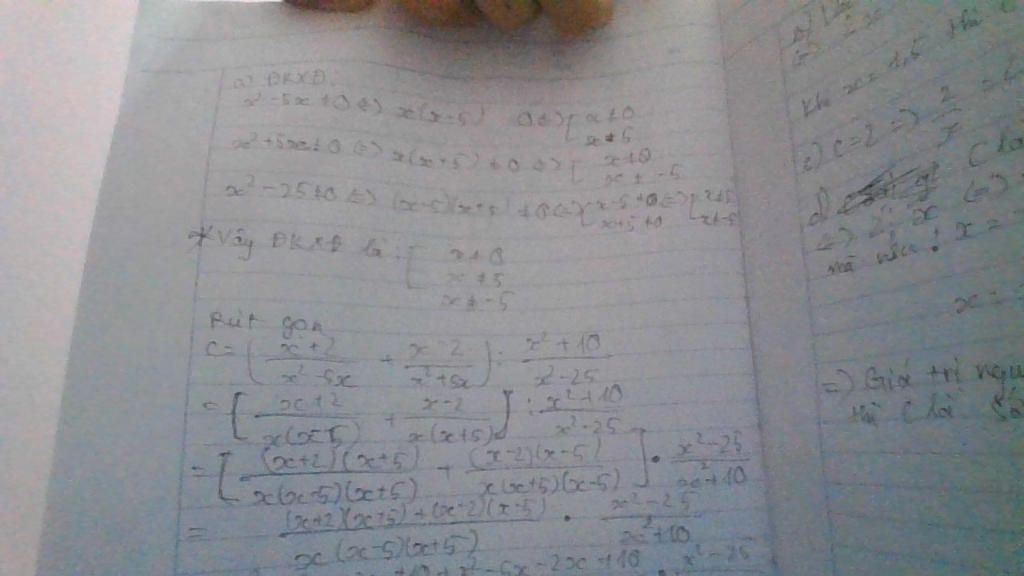 a) ĐKXĐ:
x² - 5x ≠ 0 ⇔ x(x-5) 0 ⇔ [ x ≠ 0
x ≠ 5
x² + 5x ≠ 0 ⇔ x(x+5) ≠ 0 ⇔ [ x ≠ 0
x ≠ -5
x² - 25 ≠ 0 ⇔ (x-5)(x+5) ≠ 0 ⇔ [ x-5 ≠ 0 ⇔ [ x ≠ 5
x+5 ≠ 0 x ≠ -5
* Vậy ĐKXĐ là: [ x ≠ 0
x ≠ 5
x ≠ -5
Rút gọn
C = ( (x+2)/(x²-5x) + (x-2)/(x²+5x) ) : (x²+10)/(x²-25)
= [ (x+2)/(x(x-5)) + (x-2)/(x(x+5)) ] : (x²+10)/(x²-25)
= [ (x+2)(x+5)/(x(x-5)(x+5)) + (x-2)(x-5)/(x(x+5)(x-5)) ] · (x²-25)/(x²+10)
= ((x+2)(x+5)+(x-2)(x-5))/(x(x-5)(x+5)) · (x²-25)/(x²+10)
+10+x²-5x-2x+10 x²-25
Khi x = 1,5 thì
c) C = 2 ⇒ 2/x =
d) C là
⇔ 2 ⋮ x ⇔
x =
x =
⇒ Giá trị nguy
thì C là số